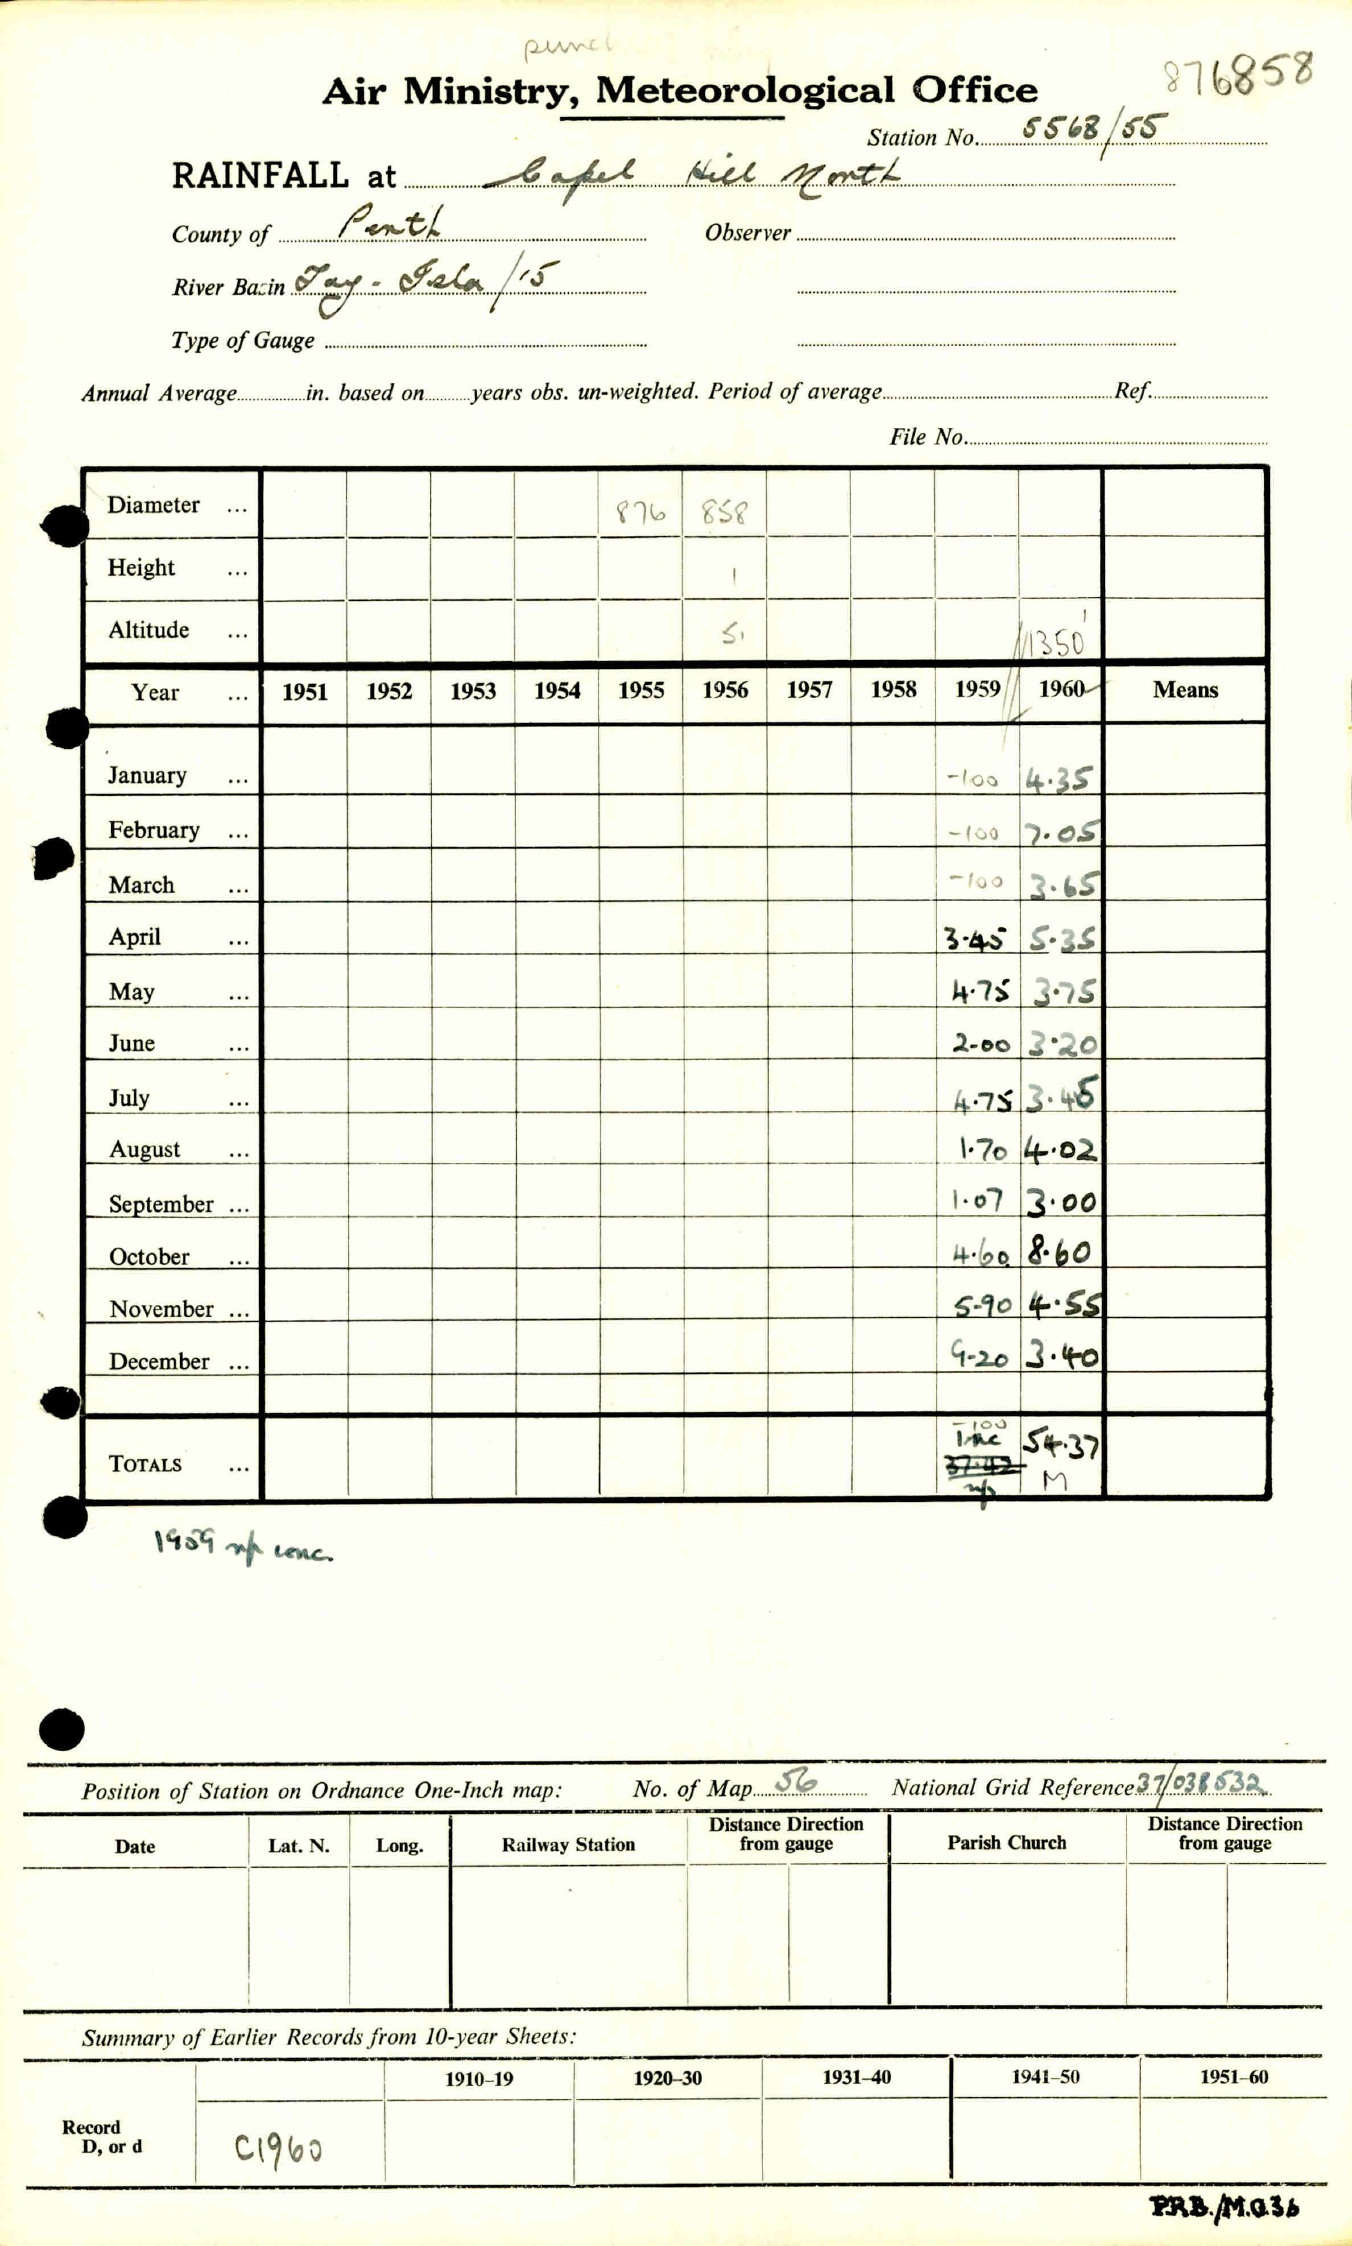 punch
876858
Air Ministry, Meteorological Office
Station No. 5568/55
RAINFALL at Capel Hill North
County of Perth Observer
River Basin Tay - Isla /15
Type of Gauge
Annual Average in. based on years obs. un-weighted. Period of average Ref.
File No.
Diameter ... 876 858
Height ... 1
Altitude ... 5. 1350'
Year ... 1951 1952 1953 1954 1955 1956 1957 1958 1959 1960 Means
January ... -100 4.35
February ... -100 7.05
March ... -100 3.65
April ... 3.45 5.35
May ... 4.75 3.75
June ... 2.00 3.20
July ... 4.75 3.45
August ... 1.70 4.02
September ... 1.07 3.00
October ... 4.60 8.60
November ... 5.90 4.55
December ... 9.20 3.40
-100
Inc 54.37
TOTALS ... 37.42 M
np
1959 np conc.
Position of Station on Ordnance One-Inch map: No. of Map 56 National Grid Reference 37/038532
Date Lat. N. Long. Railway Station Distance Direction from gauge Parish Church Distance Direction from gauge
Summary of Earlier Records from 10-year Sheets:
1910–19 1920–30 1931–40 1941–50 1951–60
Record
D, or d C1960
P.R.B./M.O.36